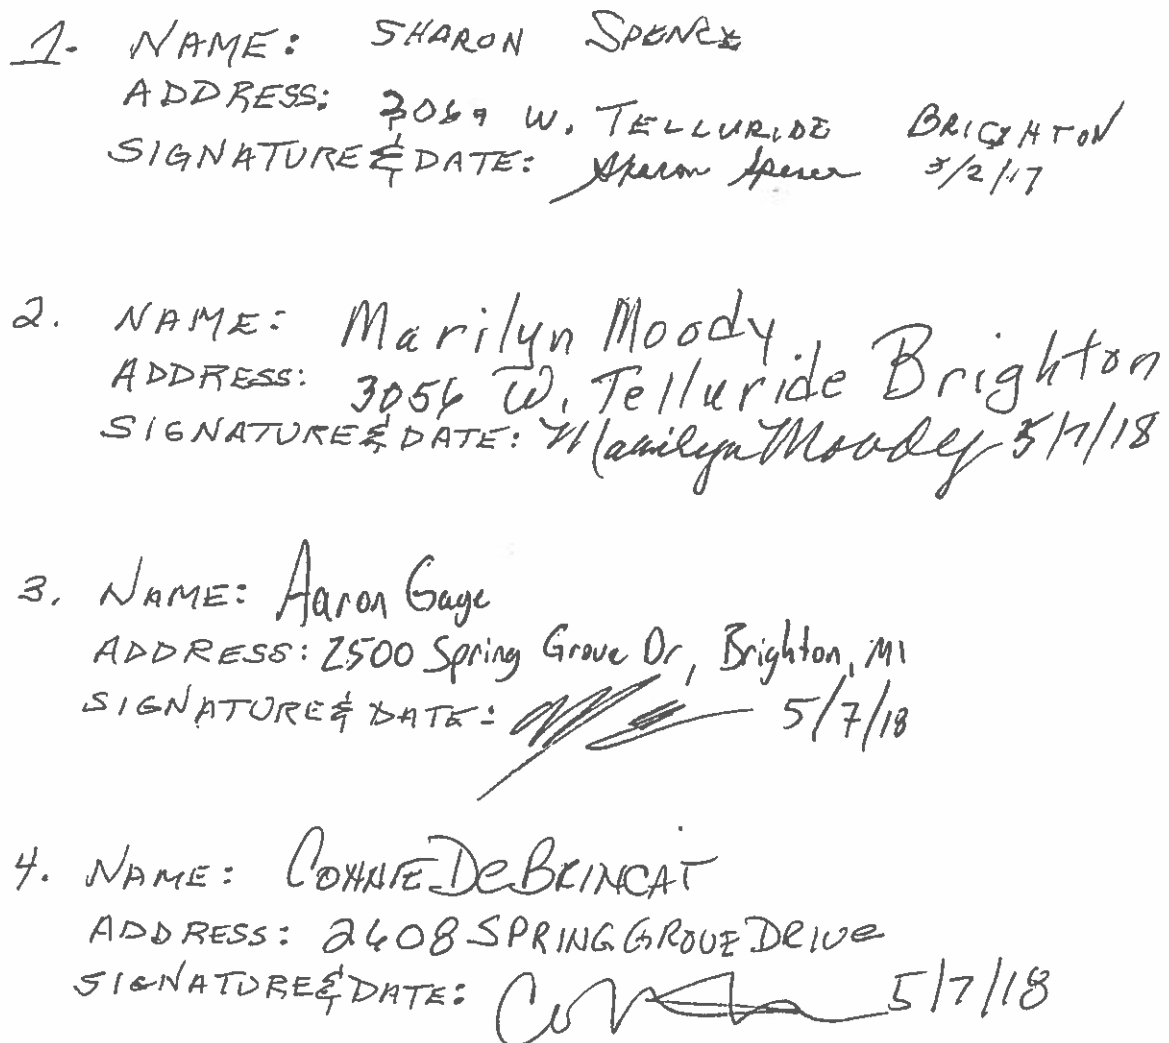 1. NAME: SHARON SPENCE
ADDRESS: 3069 W. TELLURIDE BRIGHTON
SIGNATURE & DATE: Sharon Spence 5/2/17
2. NAME: Marilyn Moody
ADDRESS: 3056 W. Telluride Brighton
SIGNATURE & DATE: Marilyn Moody 5/7/18
3. NAME: Aaron Gage
ADDRESS: 2500 Spring Grove Dr, Brighton, MI
SIGNATURE & DATE: 5/7/18
4. NAME: CONNIE DeBRINCAT
ADDRESS: 2608 SPRING GROVE DRIVE
SIGNATURE & DATE: 5/7/18